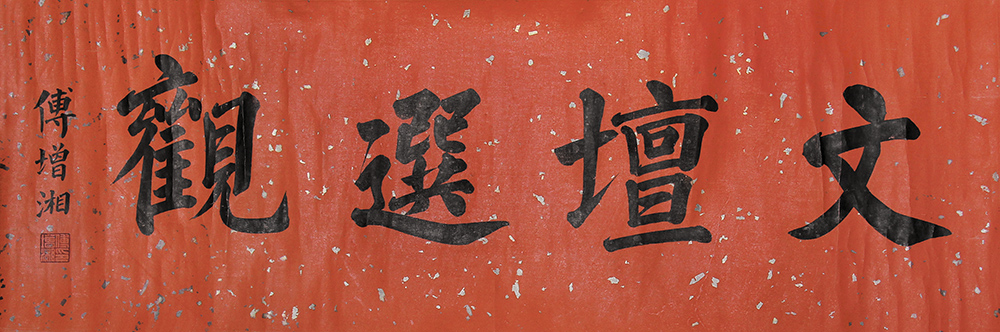 文壇選觀
傅增湘